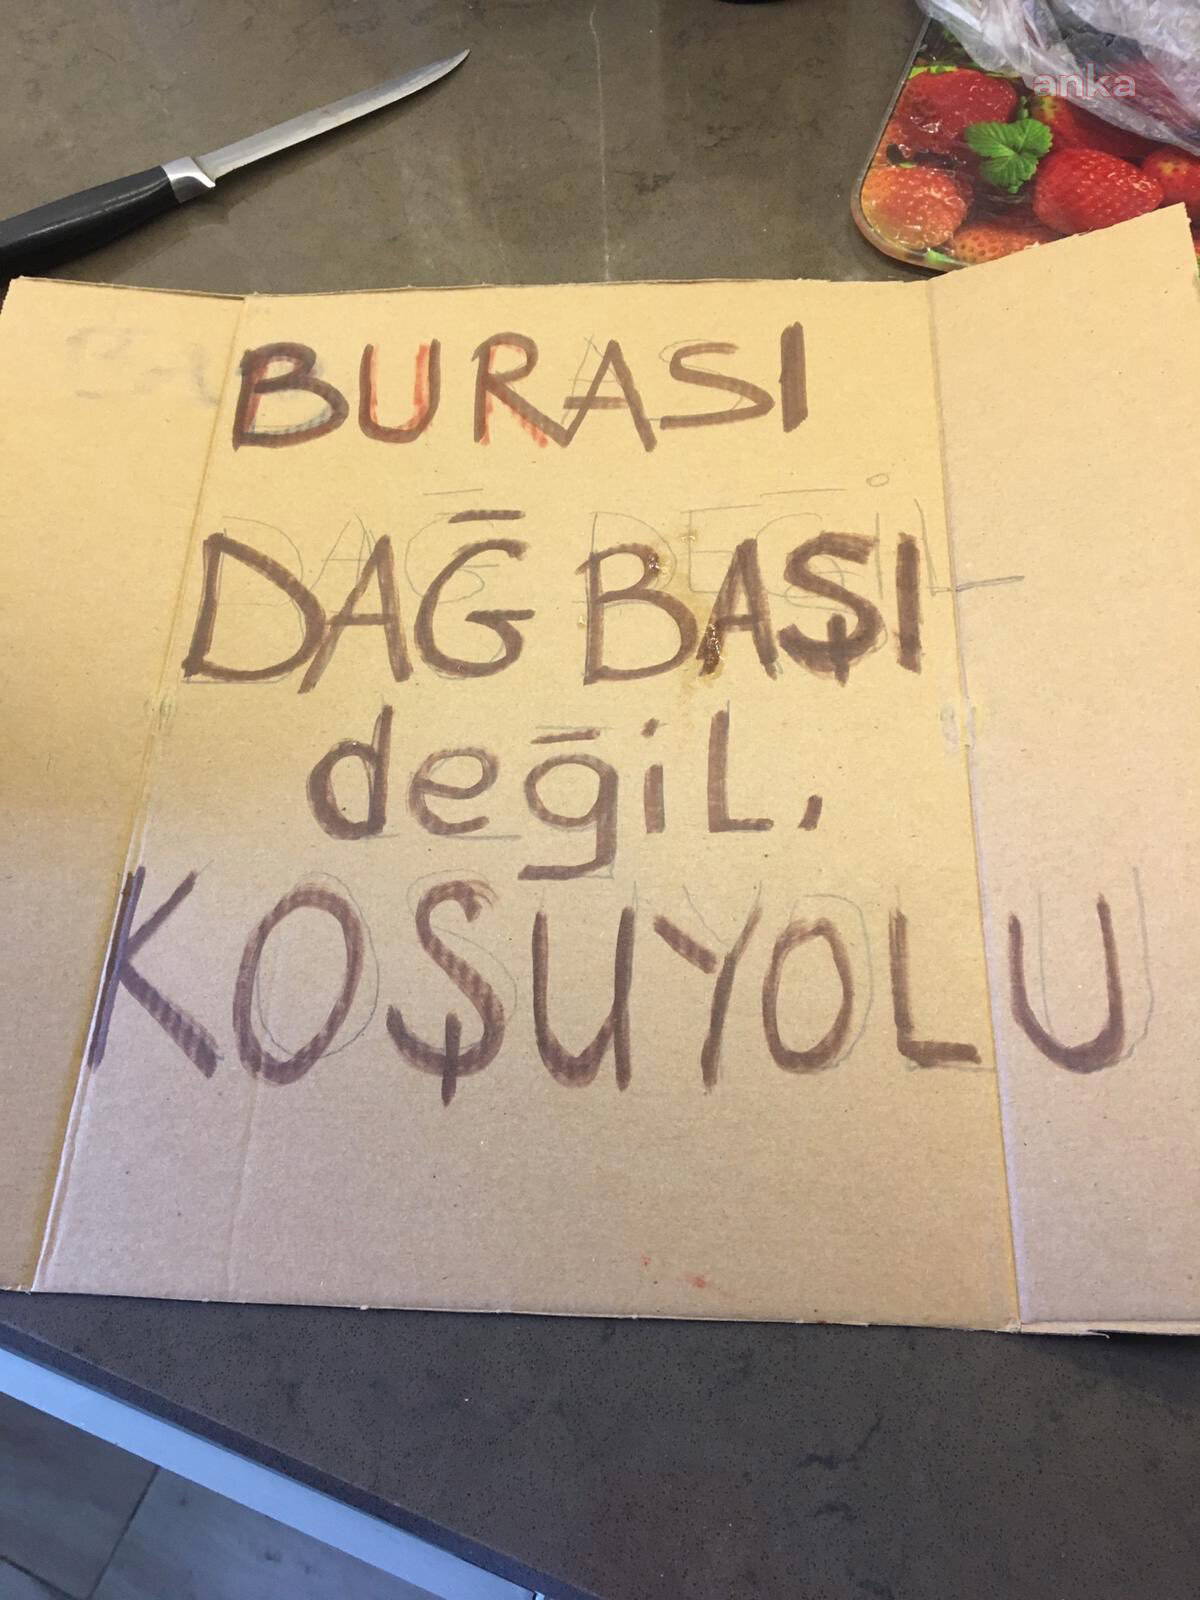 anka
BURASI
DAĞ BAŞI
değiL,
KOŞUYOLU